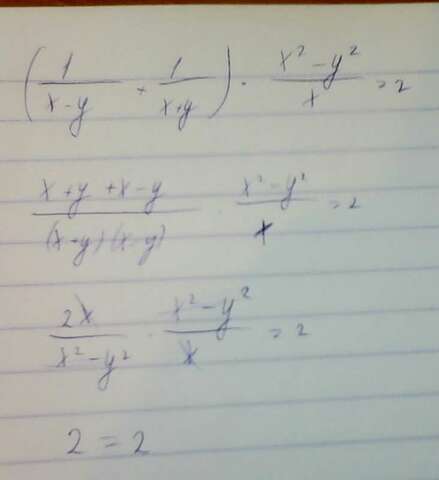 (1/(x-y) + 1/(x+y)) · (x² - y²)/x = 2
(x+y+x-y)/((x+y)(x-y)) · (x² - y²)/x = 2
2x/(x² - y²) · (x² - y²)/x = 2
2 = 2